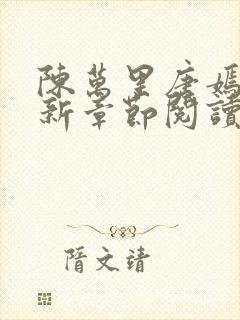 陳萬里唐嫣
新章節閱讀
隋文靖